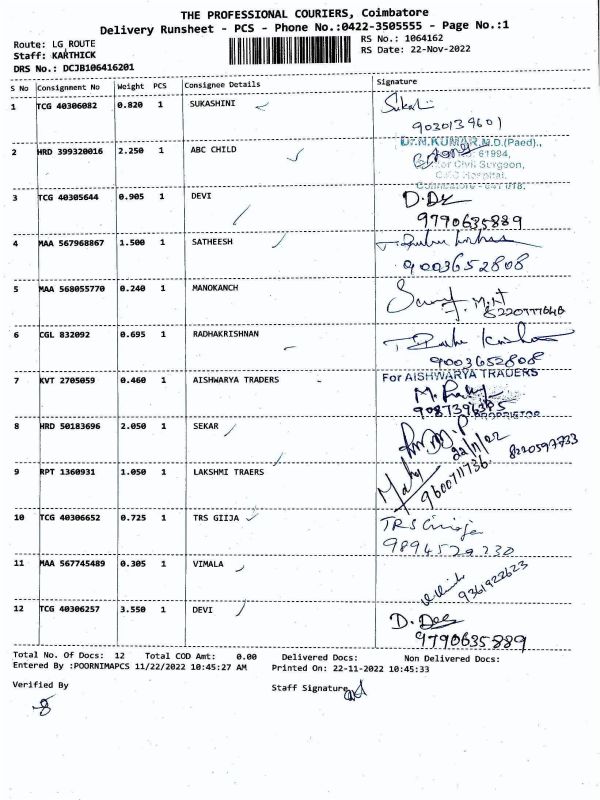 THE PROFESSIONAL COURIERS, Coimbatore
Delivery Runsheet - PCS - Phone No.:0422-3505555 - Page No.:1
Route: LG ROUTE
RS No.: 1064162
Staff: KARTHICK
RS Date: 22-Nov-2022
DRS No.: DCJB106416201
S No Consignment No Weight PCS Consignee Details Signature
1 TCG 40306082 0.820 1 SUKASHINI
9030139601
2 HRD 399320016 2.250 1 ABC CHILD
Dr.N.KUMAR, M.D.(Paed).,
61994,
Civil Surgeon,
Hospital,
3 TCG 40305644 0.905 1 DEVI D. Dee
9790635889
4 MAA 567968867 1.500 1 SATHEESH
9003652808
5 MAA 568055770 0.240 1 MANOKANCH
6 CGL 832092 0.695 1 RADHAKRISHNAN
9003652808
7 KVT 2705059 0.460 1 AISHWARYA TRADERS For AISHWARYA TRADERS
PROPRIETOR
8 HRD 50183696 2.050 1 SEKAR
22/11/22 8220597733
9 RPT 1360931 1.050 1 LAKSHMI TRAERS
9600711736
10 TCG 40306652 0.725 1 TRS GIIJA TRS
9894529230
11 MAA 567745489 0.305 1 VIMALA
9361922623
12 TCG 40306257 3.550 1 DEVI D. Dee
9790635889
Total No. Of Docs: 12 Total COD Amt: 0.00 Delivered Docs: Non Delivered Docs:
Entered By :POORNIMAPCS 11/22/2022 10:45:27 AM Printed On: 22-11-2022 10:45:33
Verified By Staff Signature